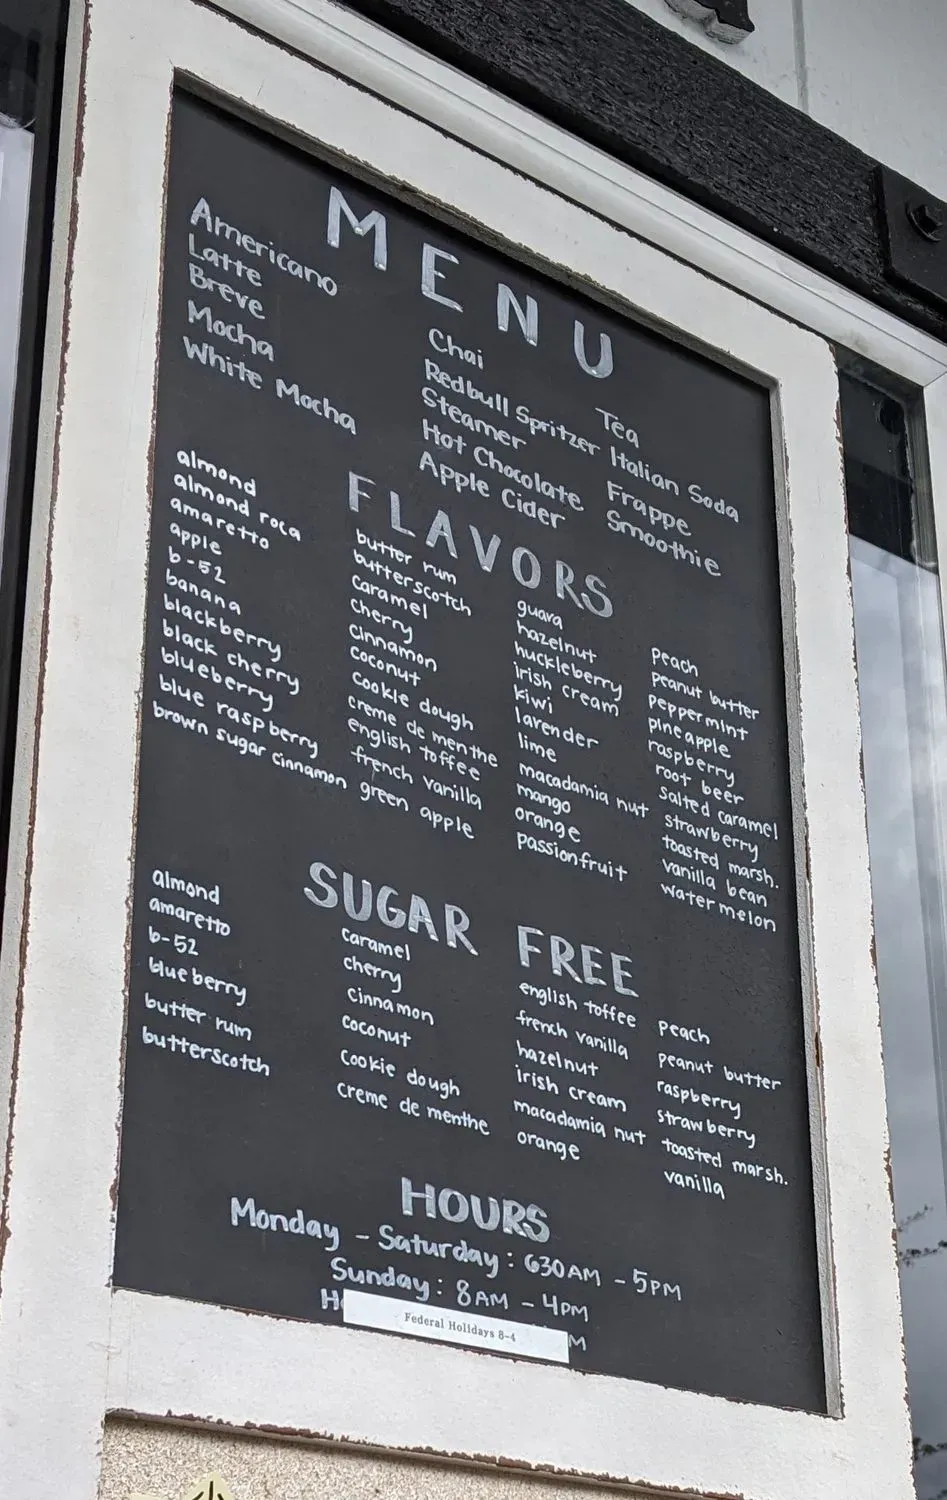 MENU
Americano
Latte
Breve
Mocha
White Mocha
Chai
Redbull Spritzer
Steamer
Hot Chocolate
Apple Cider
Tea
Italian Soda
Frappe
Smoothie
FLAVORS
almond
almond roca
amaretto
apple
b-52
banana
blackberry
black cherry
blueberry
blue raspberry
brown sugar cinnamon
butter rum
butterscotch
caramel
cherry
cinnamon
coconut
cookie dough
creme de menthe
english toffee
french vanilla
green apple
guava
hazelnut
huckleberry
irish cream
kiwi
lavender
lime
macadamia nut
mango
orange
passionfruit
peach
peanut butter
peppermint
pineapple
raspberry
root beer
salted caramel
strawberry
toasted marsh.
vanilla bean
watermelon
SUGAR FREE
almond
amaretto
b-52
blueberry
butter rum
butterscotch
caramel
cherry
cinnamon
coconut
cookie dough
creme de menthe
english toffee
french vanilla
hazelnut
irish cream
macadamia nut
orange
peach
peanut butter
raspberry
strawberry
toasted marsh.
vanilla
HOURS
Monday - Saturday: 630AM - 5PM
Sunday: 8AM - 4PM
Federal Holidays 8-4